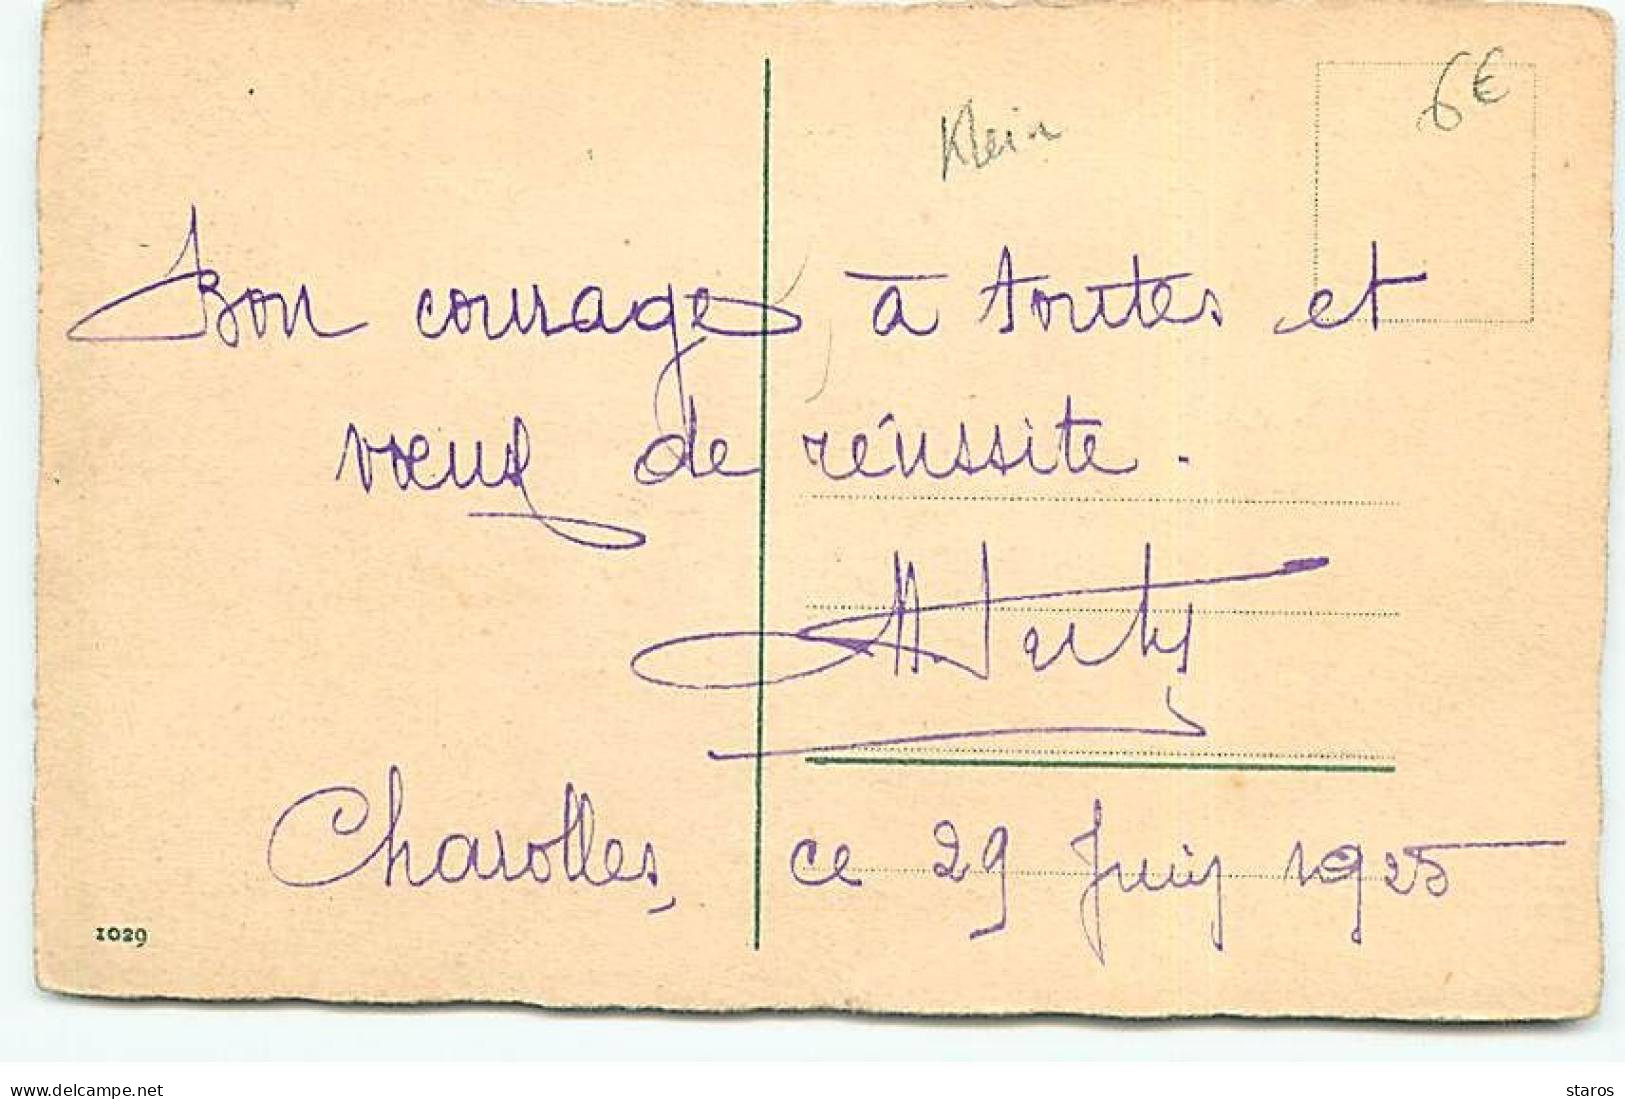 Klein
6€
Bon courage, à toutes et
vœux de réussite.
Charolles, ce 29 Juin 1925
1029
www.delcampe.net
staros